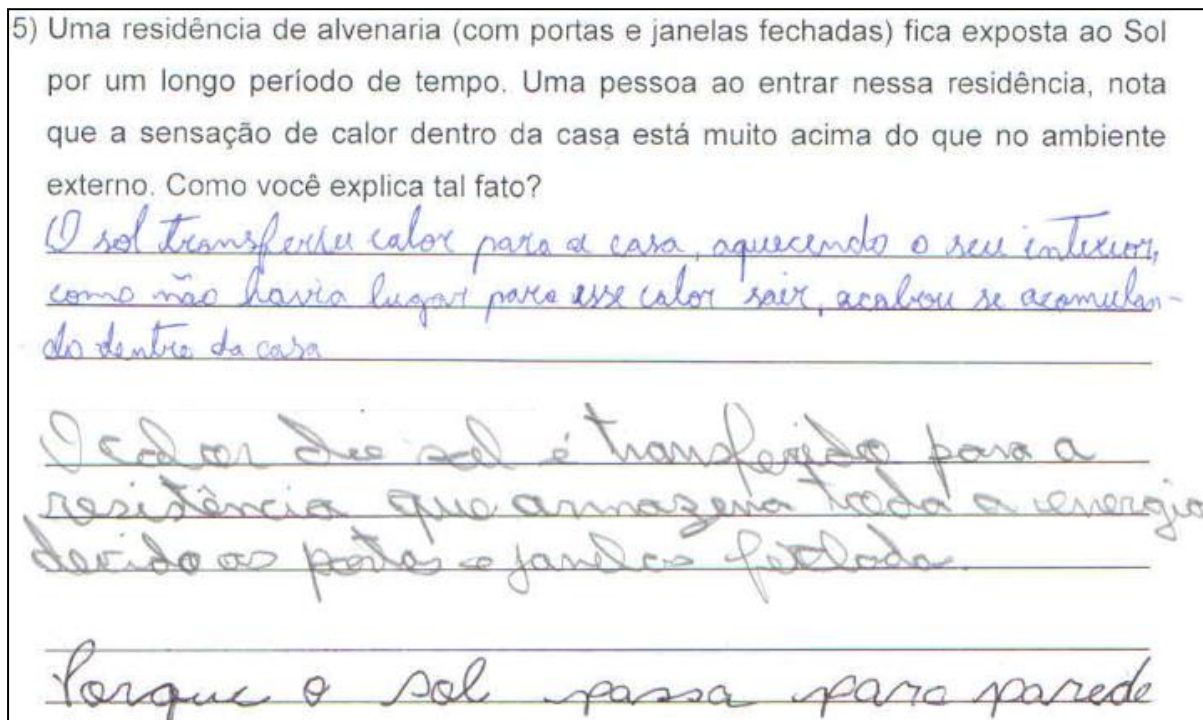 5) Uma residência de alvenaria (com portas e janelas fechadas) fica exposta ao Sol
por um longo período de tempo. Uma pessoa ao entrar nessa residência, nota
que a sensação de calor dentro da casa está muito acima do que no ambiente
externo. Como você explica tal fato?
O sol transferiu calor para a casa, aquecendo o seu interior,
como não havia lugar para esse calor sair, acabou se acomulan-
do dentro da casa
O calor do sol é transferido para a
resistência que armazena toda a energia
devido as portas e janelas
Porque o sol passa para parede